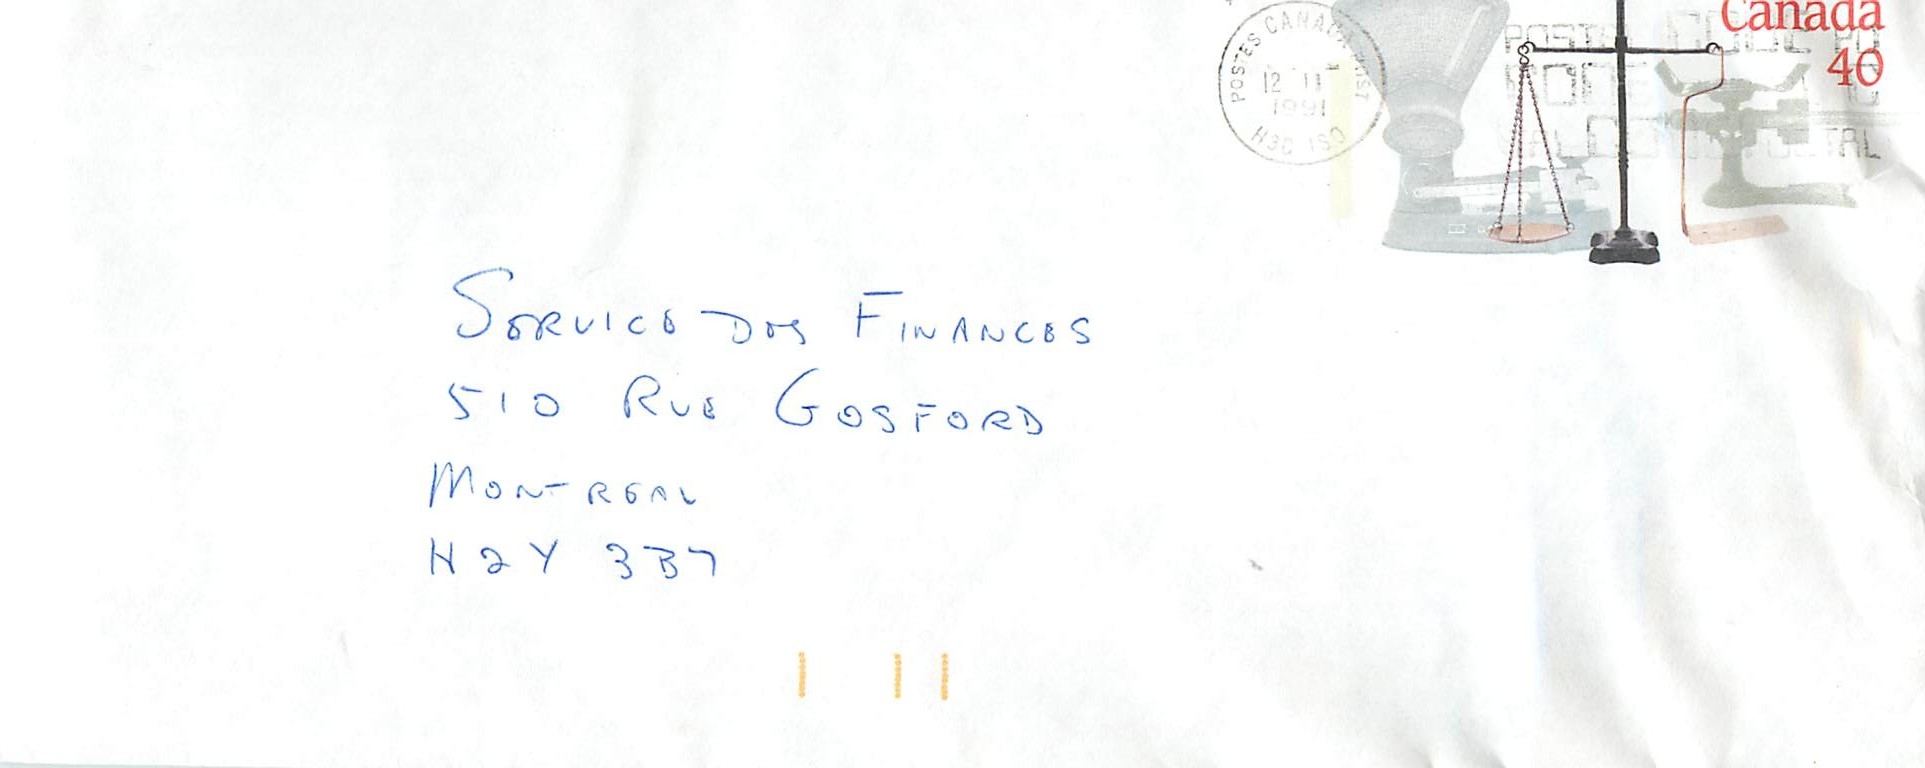 Canada
40
POSTES CANADA POST
12 II
1991
H3C 1S0
SERVICE DES FINANCES
510 RUE GOSFORD
MONTREAL
H2Y 3B7